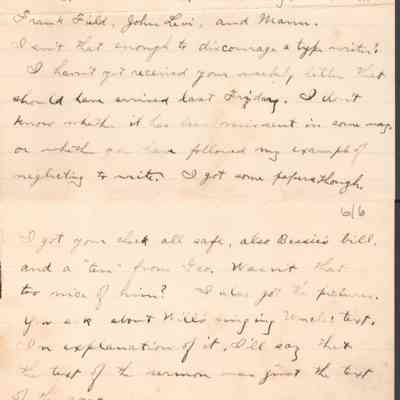 Frank Field, John Levi, and Mann.
Isn't that enough to discourage a type writer?
I haven't yet received your weekly letter that
should have arrived last Friday. I don't
know whether it has been missent in some way.
or whether you have followed my example of
neglecting to write. I got some papers though.
6/6
I got your check all safe, also Bessie's bill.
and a "ten" from Geo. Wasn't that
too nice of him? I also got the pictures.
You ask about Will's singing Uncle's text.
In explanation of it, I'll say that
the text of the sermon was just the text
of the